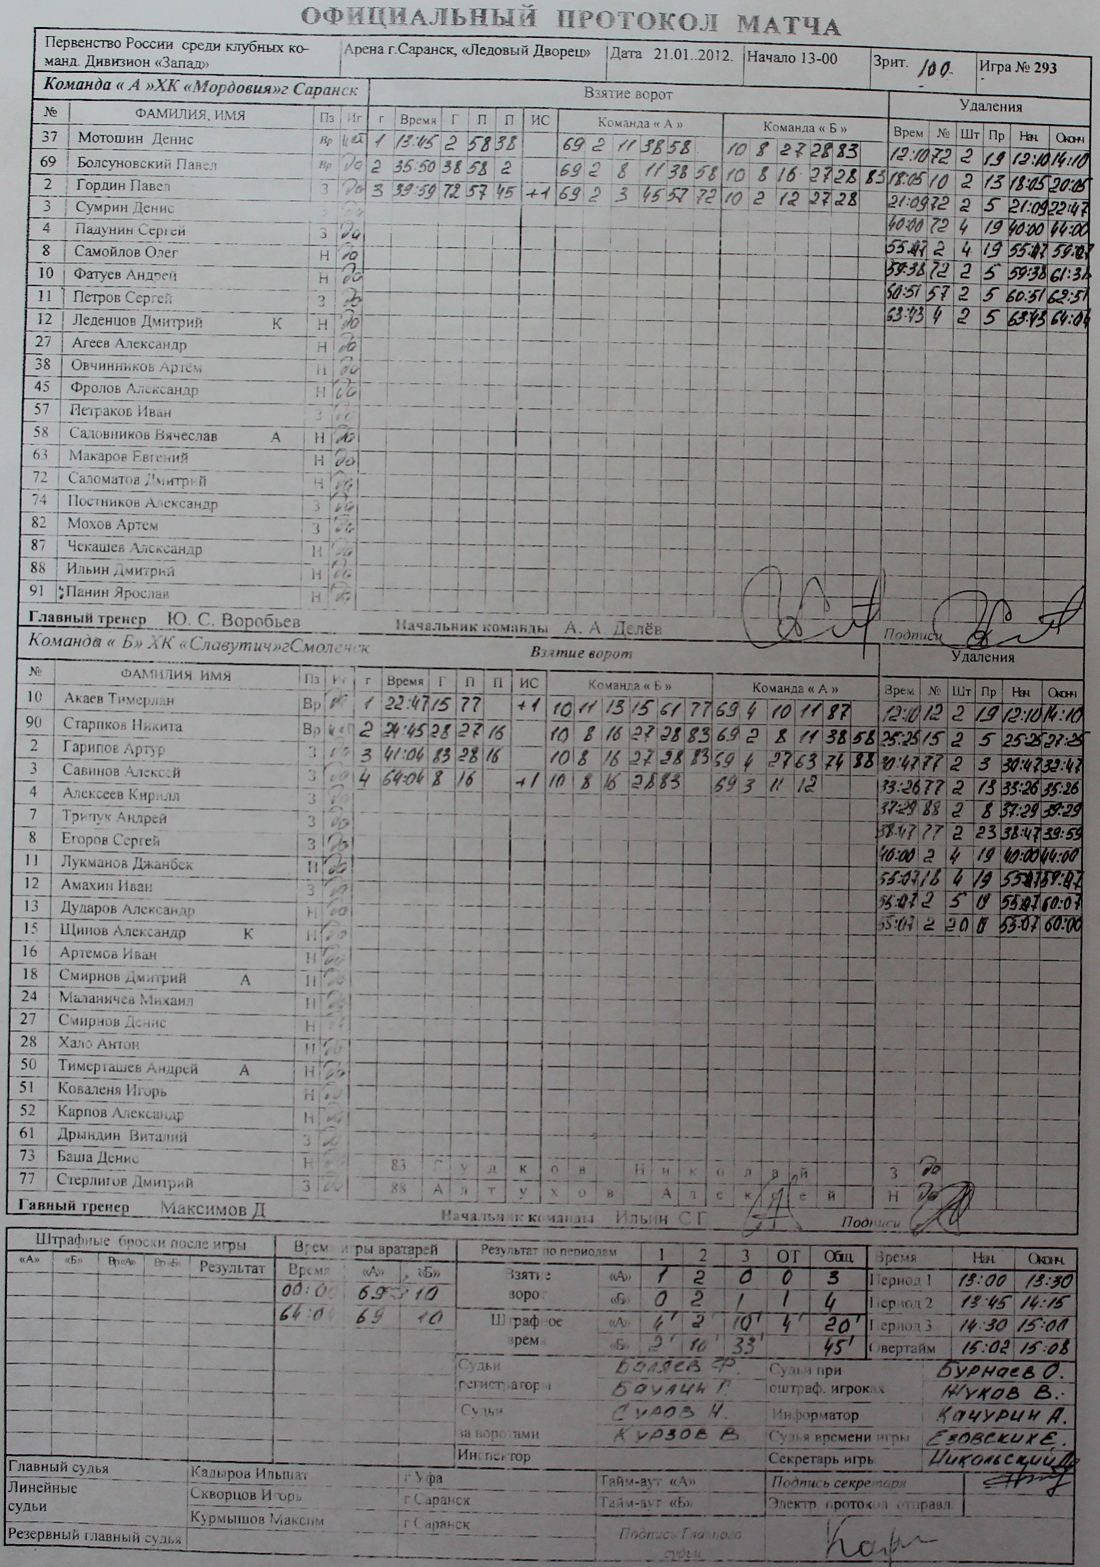 ОФИЦИАЛЬНЫЙ ПРОТОКОЛ МАТЧА
Первенство России среди клубных ко- Арена г.Саранск, «Ледовый Дворец» Дата 21.01..2012. Начало 13-00 Зрит. 100. Игра № 293
манд. Дивизион «Запад»
Команда « А »ХК «Мордовия»г Саранск Взятие ворот Удаления
№ ФАМИЛИЯ, ИМЯ Пз Иг г Время Г П П ИС Команда « А » Команда « Б » Врем № Шт Пр Нач Оконч
37 Мотошин Денис Вр 1 13:45 2 58 38 69 2 11 38 58 10 8 27 28 83 12:10 72 2 19 12:10 14:10
69 Болсуновский Павел Вр 2 35:50 38 58 2 69 2 8 11 38 58 10 8 16 27 28 83 18:05 10 2 13 18:05 20:05
2 Гордин Павел З 3 39:59 72 57 45 +1 69 2 3 45 57 72 10 2 12 27 28 21:09 72 2 5 21:09 22:47
3 Сумрин Денис З 40:00 72 4 19 40:00 44:00
4 Падунин Сергей З 55:07 2 4 19
8 Самойлов Олег Н 59:38 72 2 5 59:38 61:38
10 Фатуев Андрей Н 60:51 57 2 5 60:51 62:51
11 Петров Сергей З 63:43 4 2 5 63:43 64:04
12 Леденцов Дмитрий К Н
27 Агеев Александр Н
38 Овчинников Артем Н
45 Фролов Александр Н
57 Петраков Иван З
58 Садовников Вячеслав А Н
63 Макаров Евгений Н
72 Саломатов Дмитрий Н
74 Постников Александр З
82 Мохов Артем З
87 Чекашев Александр Н
88 Ильин Дмитрий Н
91 Панин Ярослав Н
Главный тренер Ю. С. Воробьев Начальник команды А. А. Делёв Подписи
Команда « Б» ХК «Славутич»гСмоленск Взятие ворот Удаления
№ ФАМИЛИЯ ИМЯ Пз Иг г Время Г П П ИС Команда « Б » Команда « А » Врем № Шт Пр Нач Оконч
10 Акаев Тимерлан Вр 1 22:47 15 77 +1 10 11 13 15 61 77 69 4 10 11 87 12:10 12 2 19 12:10 14:10
90 Старпков Никита Вр 2 24:45 28 27 16 10 8 16 27 28 83 69 2 8 11 38 58 25:25 15 2 5 25:25 27:25
2 Гарипов Артур З 3 41:04 83 28 16 10 8 16 27 28 83 69 4 27 63 74 88 30:47 77 2 3 30:47 32:47
3 Савинов Алексей З 4 64:04 8 16 +1 10 8 16 28 83 69 3 11 12 33:26 77 2 13 33:26 35:26
4 Алексеев Кирилл З 37:29 88 2 8 37:29 39:29
7 Трипук Андрей З 38:47 77 2 23 38:47 39:59
8 Егоров Сергей З 40:00 2 4 19 40:00 44:00
11 Лукманов Джанбек Н 55:07 18 4 19
12 Амахин Иван З 55:07 2 5 60:07
13 Дударов Александр Н 55:07 2 20 55:07 60:00
15 Щипов Александр К Н
16 Артемов Иван Н
18 Смирнов Дмитрий А Н
24 Маланичев Михаил Н
27 Смирнов Денис Н
28 Хало Антон Н
50 Тимерташев Андрей А Н
51 Коваленя Игорь Н
52 Карпов Александр Н
61 Дрындин Виталий З
73 Баша Денис Н 83 Гудков Николай З
77 Стерлигов Дмитрий З 88 Алтухов Алексей Н
Гавный тренер Максимов Д Начальник команды Ильин С Г Подписи
Штрафные броски после игры Врем игры вратарей Результат по периодам 1 2 3 ОТ Общ Время Нач. Оконч.
«А» «Б» Вр«А» Вр«Б» Результат Время «А» «Б» Взятие ворот «А» 1 2 0 0 3 Период 1 13:00 13:30
00:00 69 10 «Б» 0 2 1 1 4 Период 2 13:45 14:15
64:04 69 10 Штрафное время «А» 4' 2' 10' 4' 20' Период 3 14:30 15:00
«Б» 2' 10' 33' 45' Овертайм 15:02 15:08
Судьи Баляев Ф. Судья при Бурнаев О.
регистраторы Баулин Г. оштраф. игроках Жуков В.
Судьи Суров Н. Информатор Качурин А.
за воротами Курзов В. Судья времени игры Езовских Е.
Инспектор Секретарь игры Никольский
Главный судья Кадыров Ильшат г Уфа Тайм-аут «А» Подпись секретаря
Линейные Скворцов Игорь г Саранск Тайм-аут «Б» Электр протокол отправл.
судьи Курмышов Максим г Саранск
Резервный главный судья Подпись Главного судьи